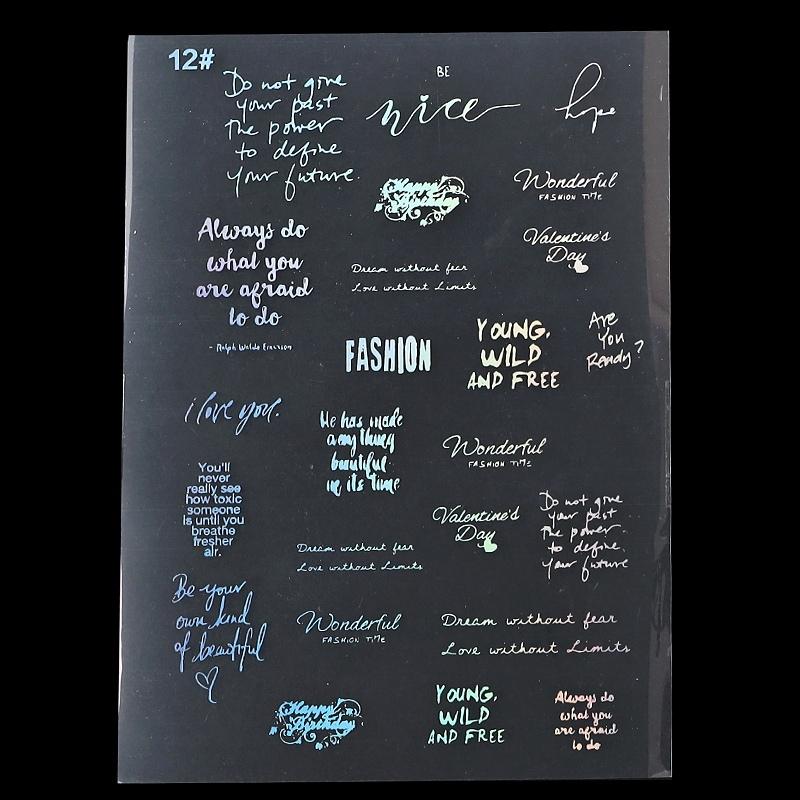 12#
Do not give
your past
The power
to define
your future.
BE
nice
hope
Happy
Birthday
Wonderful
FASHION TITle
Always do
what you
are afraid
to do
- Ralph Waldo Emerson
Dream without fear
Love without Limits
Valentine's
Day
FASHION
YOUNG,
WILD
AND FREE
Are
You
Ready?
i love you.
He has made
everything
beautiful
in its time
Wonderful
FASHION TITle
You'll
never
really see
how toxic
someone
is until you
breathe
fresher
air.
Valentine's
Day
Do not give
your past
The power
to define
your future
Dream without fear
Love without Limits
Be your
own kind
of beautiful
Wonderful
FASHION TITle
Dream without fear
Love without Limits
Happy
Birthday
YOUNG,
WILD
AND FREE
Always do
what you
are afraid
to do